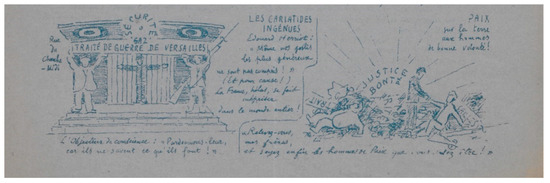 SÉCURITÉ
Rue
du
Cherche
-Midi
TRAITÉ DE GUERRE DE VERSAILLES
L'Objecteur de conscience : « Pardonnons-leur,
car ils ne savent ce qu'ils font ! »
LES CARIATIDES
INGÉNUES
Edouard Herriot :
« Même nos gestes
les plus généreux
ne sont pas compris ! »
(Et pour cause !)
La France, hélas, se fait
dans le monde entier !
PAIX
sur la terre
aux hommes
de bonne volonté !
JUSTICE
BONTÉ
« Relevez-vous,
mes frères,
et soyez enfin les hommes de Paix que vous